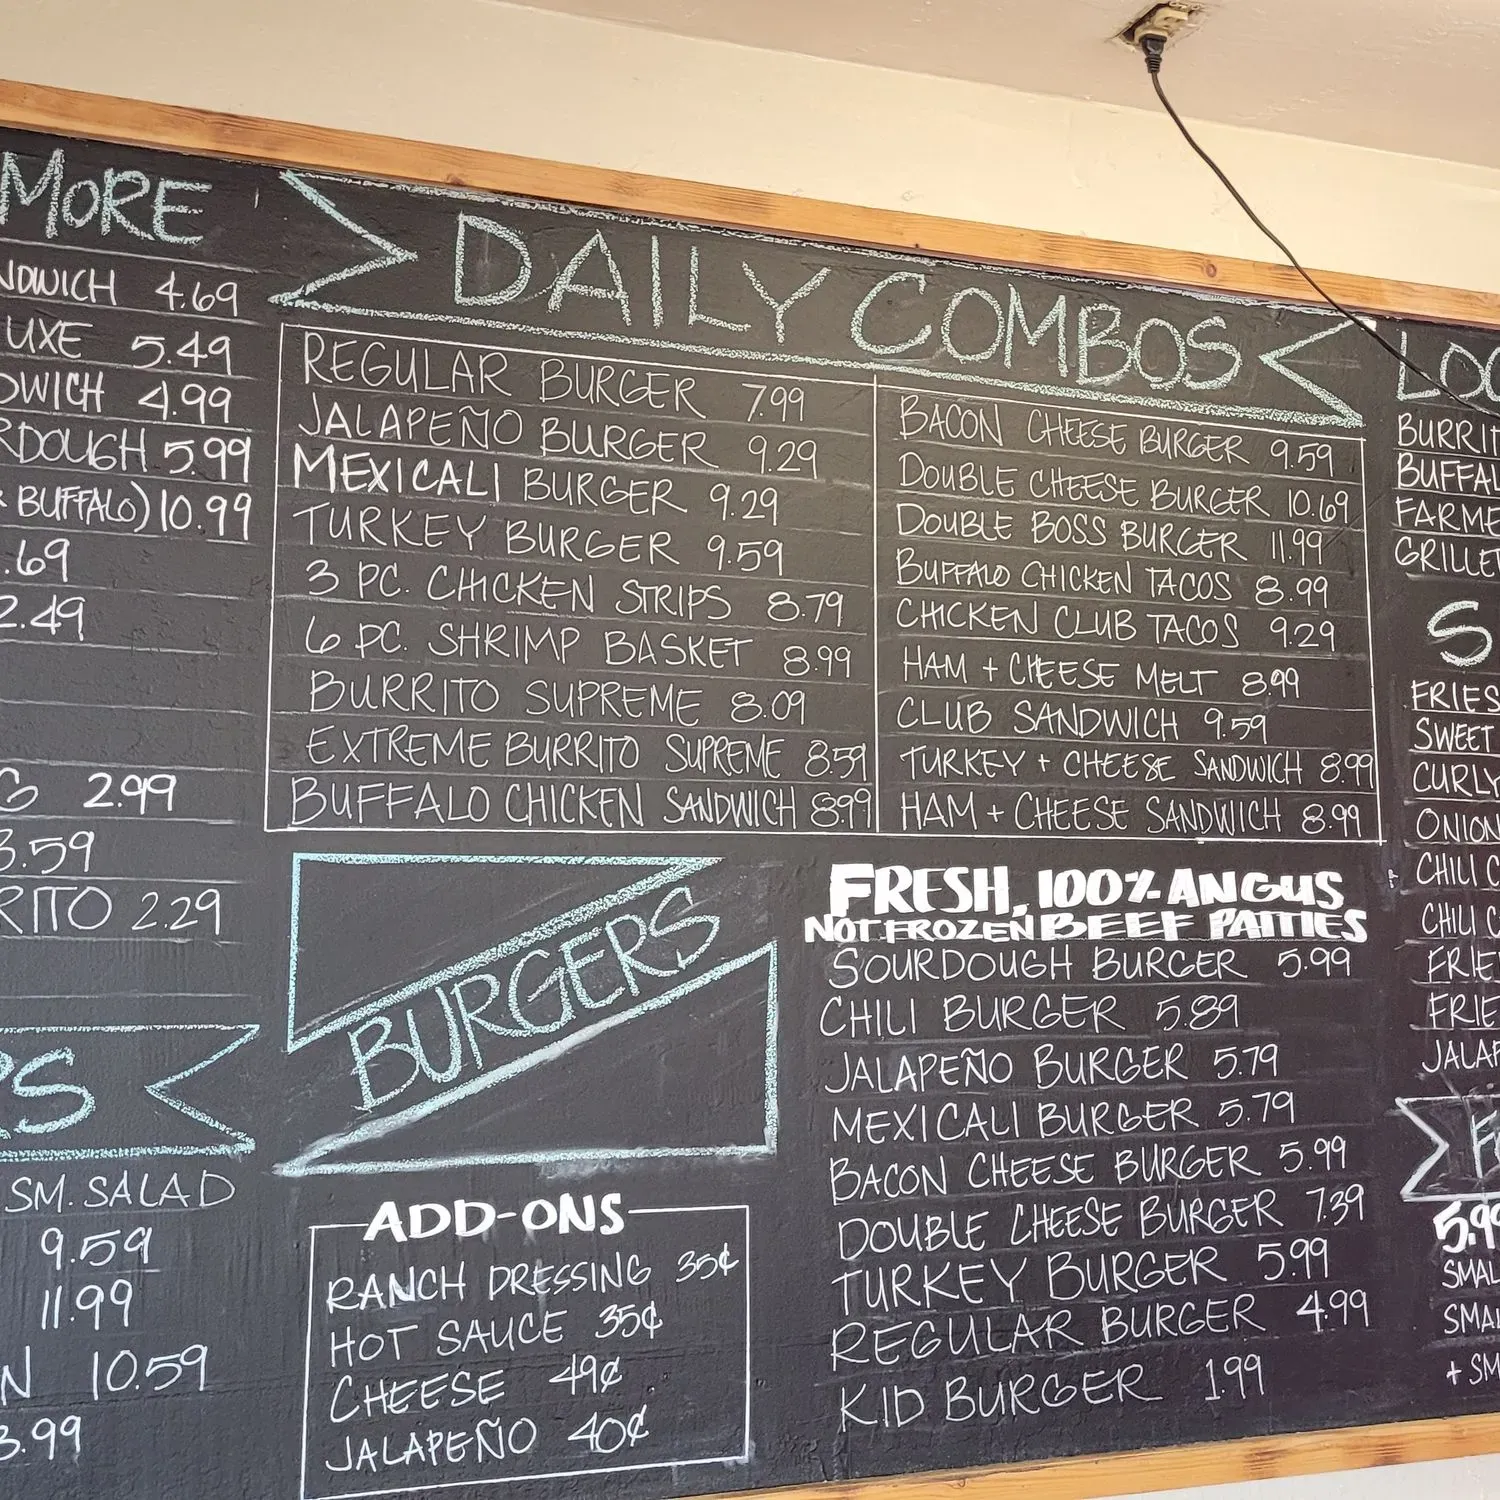 MORE
4.69
5.49
4.99
5.99
BUFFALO) 10.99
.69
2.49
2.99
3.59
2.29
SM. SALAD
9.59
11.99
10.59
3.99
DAILY COMBOS
REGULAR BURGER 7.99
JALAPEÑO BURGER 9.29
MEXICALI BURGER 9.29
TURKEY BURGER 9.59
3 PC. CHICKEN STRIPS 8.79
6 PC. SHRIMP BASKET 8.99
BURRITO SUPREME 8.09
EXTREME BURRITO SUPREME 8.59
BUFFALO CHICKEN SANDWICH 8.99
BACON CHEESE BURGER 9.59
DOUBLE CHEESE BURGER 10.69
DOUBLE BOSS BURGER 11.99
BUFFALO CHICKEN TACOS 8.99
CHICKEN CLUB TACOS 9.29
HAM + CHEESE MELT 8.99
CLUB SANDWICH 9.59
TURKEY + CHEESE SANDWICH 8.99
HAM + CHEESE SANDWICH 8.99
BURGERS
ADD-ONS
RANCH DRESSING 35¢
HOT SAUCE 35¢
CHEESE 49¢
JALAPEÑO 40¢
FRESH, 100% ANGUS
NOT FROZEN BEEF PATTIES
SOURDOUGH BURGER 5.99
CHILI BURGER 5.89
JALAPEÑO BURGER 5.79
MEXICALI BURGER 5.79
BACON CHEESE BURGER 5.99
DOUBLE CHEESE BURGER 7.39
TURKEY BURGER 5.99
REGULAR BURGER 4.99
KID BURGER 1.99
FRIES
SWEET
CURLY
ONION
CHILI
CHILI
5.99
+ SM